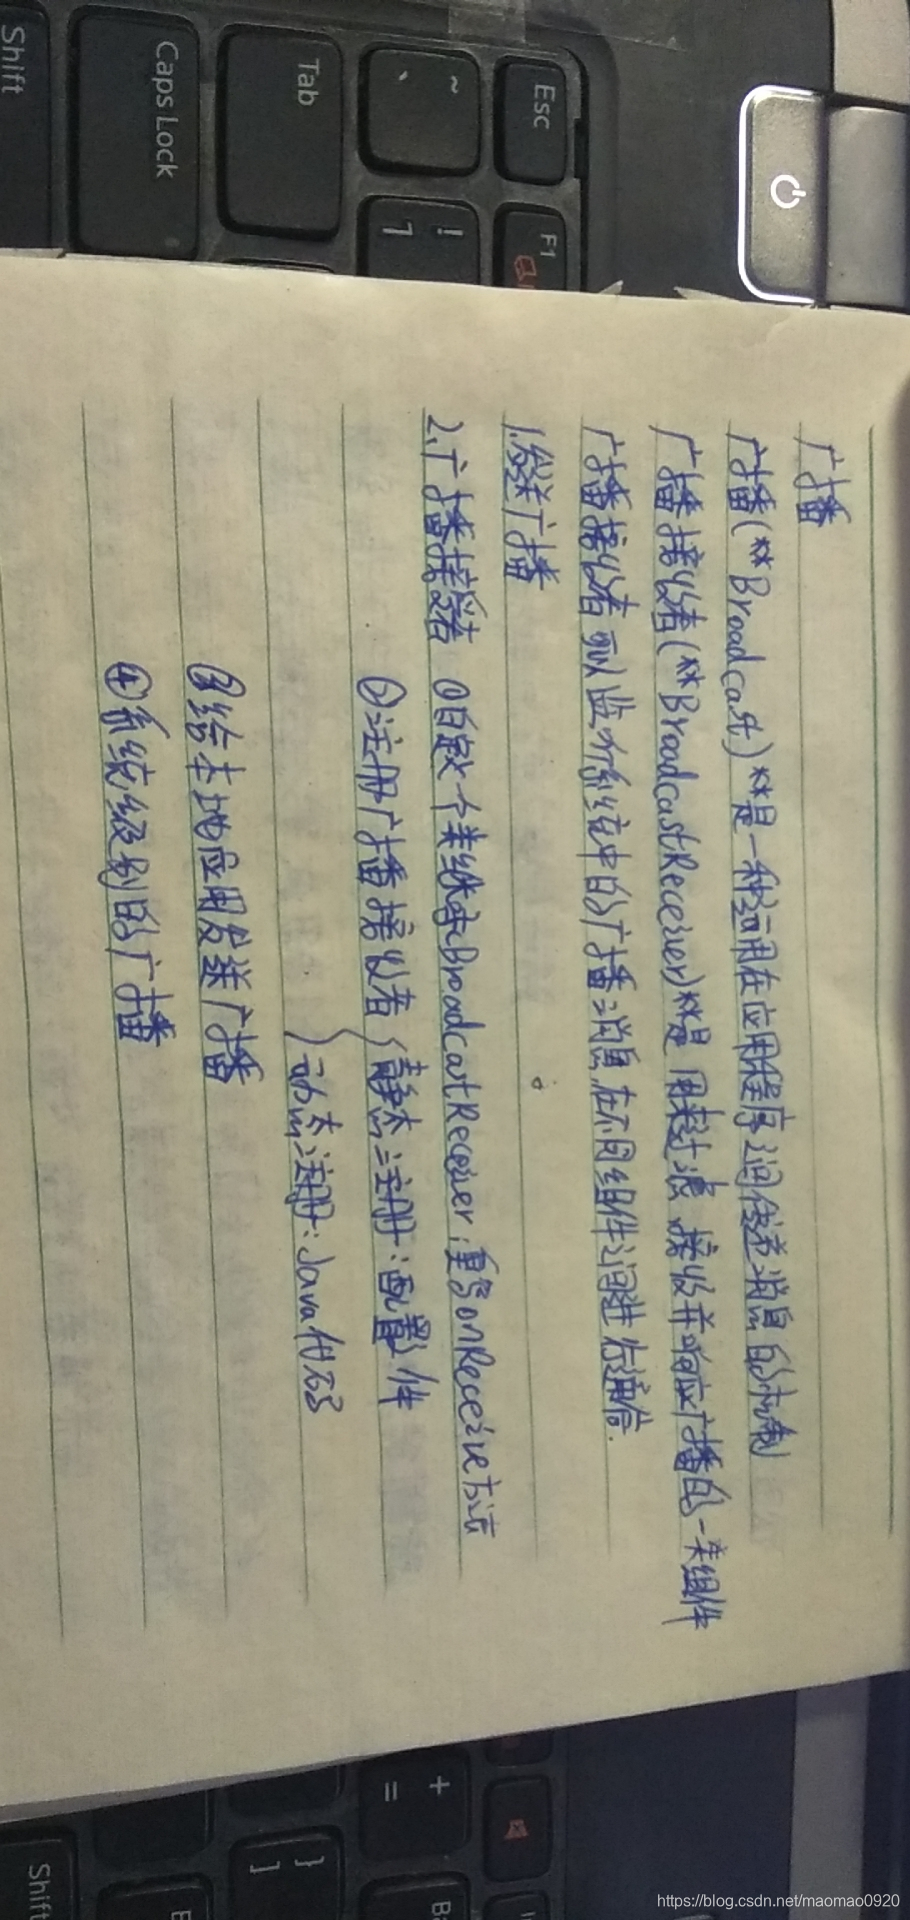 广播
广播(**Broadcast)**是一种运用在应用程序之间传递消息的机制
广播接收者(**BroadcastReceiver)**是用来过滤、接收并响应广播的一类组件
广播接收者可以监听系统中的广播消息,在不同组件之间进行通信.
1.发送广播
2.广播接受者 ①自定义个类继承BroadcastReceiver,重写onReceive方法
②注册广播接收者 静态注册:配置文件
动态注册:Java代码
③给本地应用发送广播
④系统级别的广播
Esc
F1
~
`
!
1
Tab
Caps Lock
Shift
+
=
}
]
Shift
https://blog.csdn.net/maomao0920